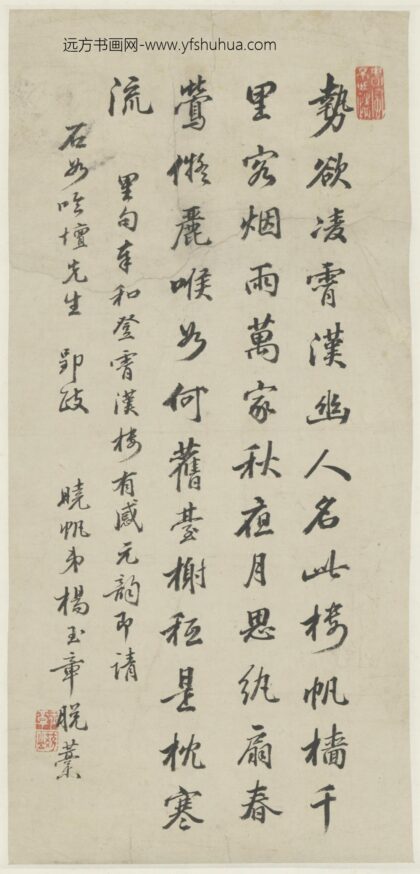 远方书画网-www.yfshuhua.com
勢欲凌霄漢幽人名此樓帆檣千
里客烟雨萬家秋夜月思紈扇春
鶯儗麗喉如何舊臺榭秖是枕寒
流
里句奉和登霄漢樓有感元韵即請
石如吟壇先生 郢政
曉帆弟楊玉章脱藁